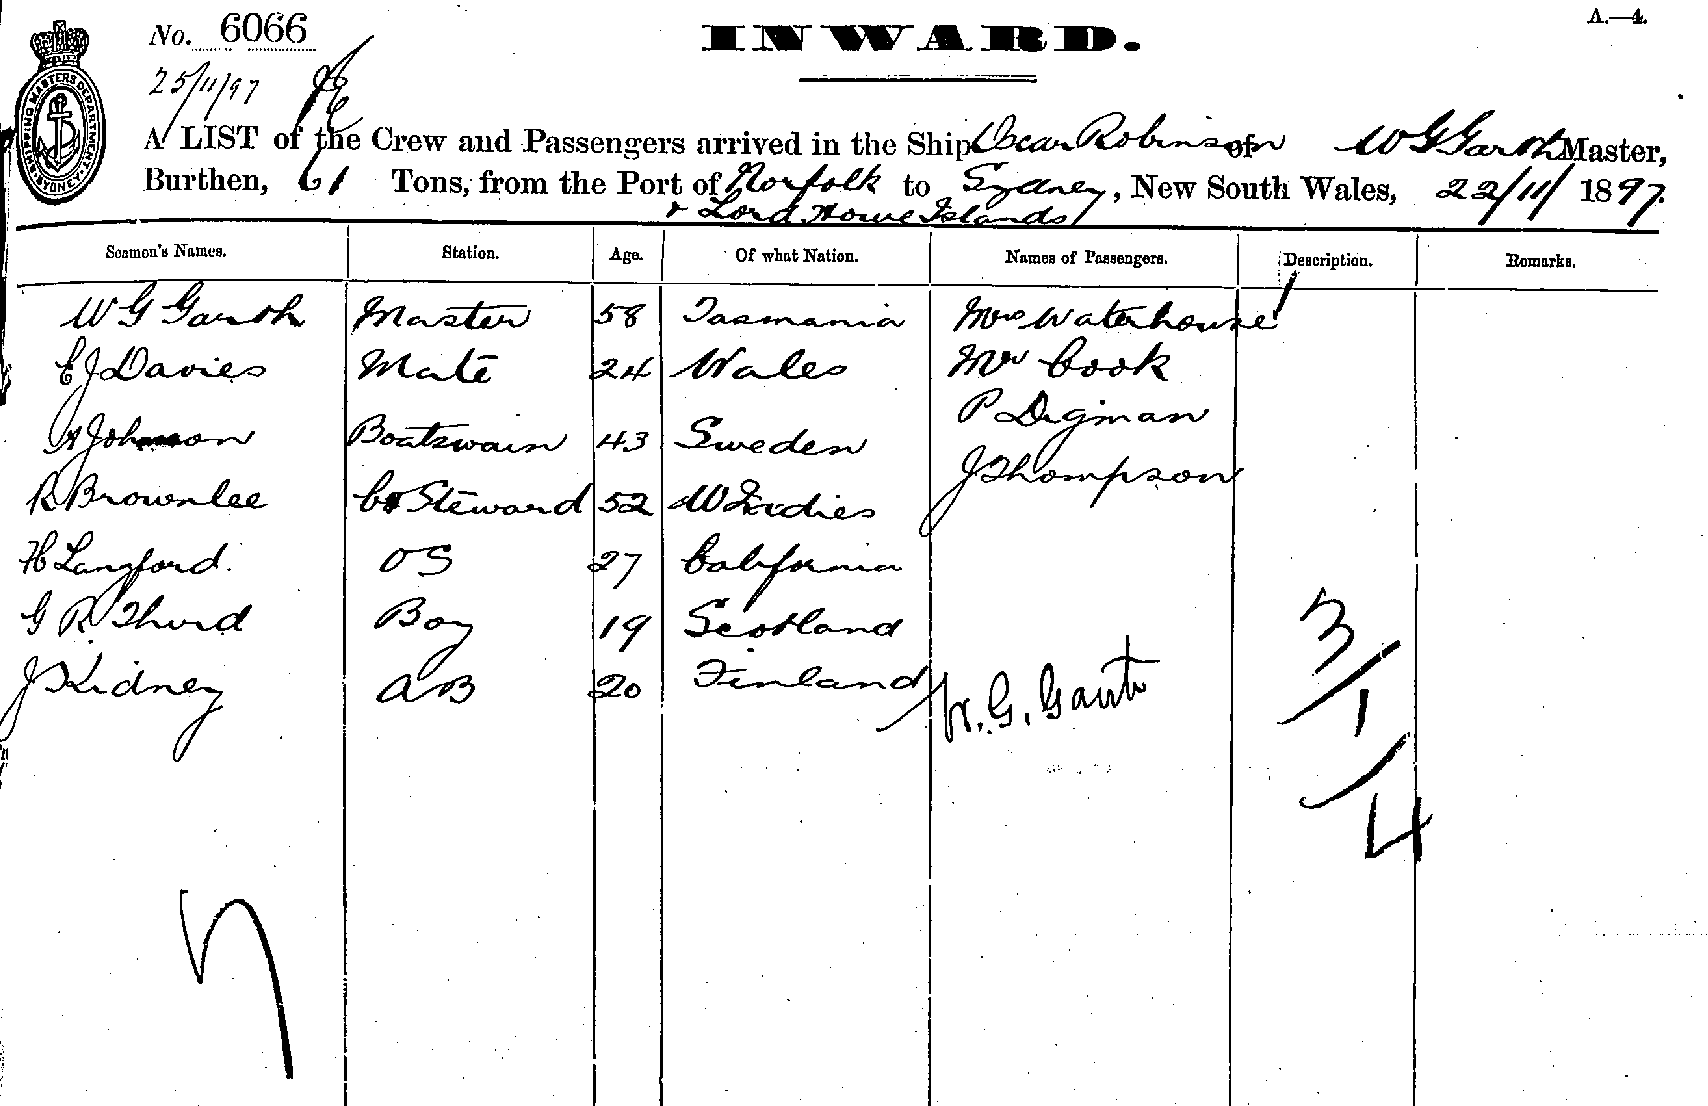 A.—4.
No. 6066
INWARD.
25/11/97
SHIPPING MASTERS DEPARTMENT SYDNEY
A LIST of the Crew and Passengers arrived in the Ship Oscar Robinson of W G Garth Master,
Burthen, 61 Tons, from the Port of Norfolk to Sydney, New South Wales, 22/11/1897.
& Lord Howe Islands
Seamen's Names. Station. Age. Of what Nation. Names of Passengers. Description. Remarks.
W G Garth Master 58 Tasmania Mrs Waterhouse /
E J Davies Mate 24 Wales Mr Cook
P Digman
A Johnson Boatswain 43 Sweden
J Thompson
R Brownlee Steward 52 W Indies
H Langford OS 27 California
G R Thurd Boy 19 Scotland
J Kidney AB 20 Finland
W. G. Garth
3/1/4
7